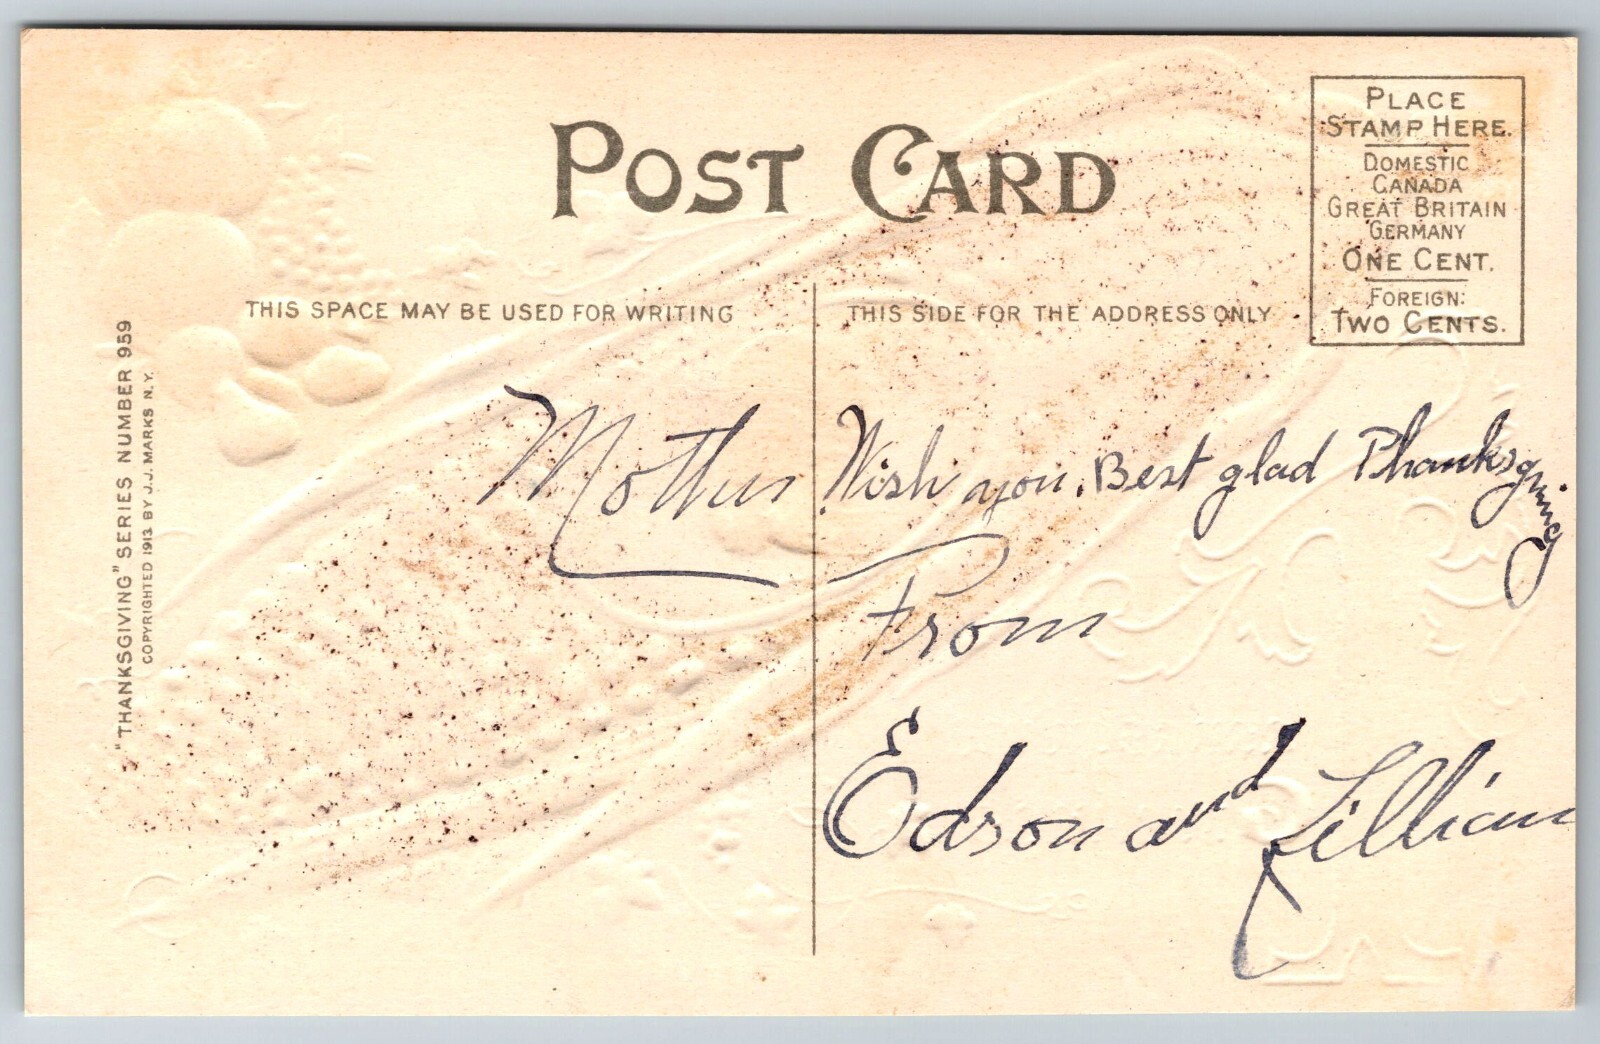 POST CARD
PLACE
STAMP HERE.
DOMESTIC
CANADA
GREAT BRITAIN
GERMANY
ONE CENT.
FOREIGN:
TWO CENTS.
THIS SPACE MAY BE USED FOR WRITING
THIS SIDE FOR THE ADDRESS ONLY
"THANKSGIVING" SERIES NUMBER 959
COPYRIGHTED 1913 BY J.J. MARKS N.Y.
Mother Wish you. Best glad Thanksgiving
From
Edson and Lillian